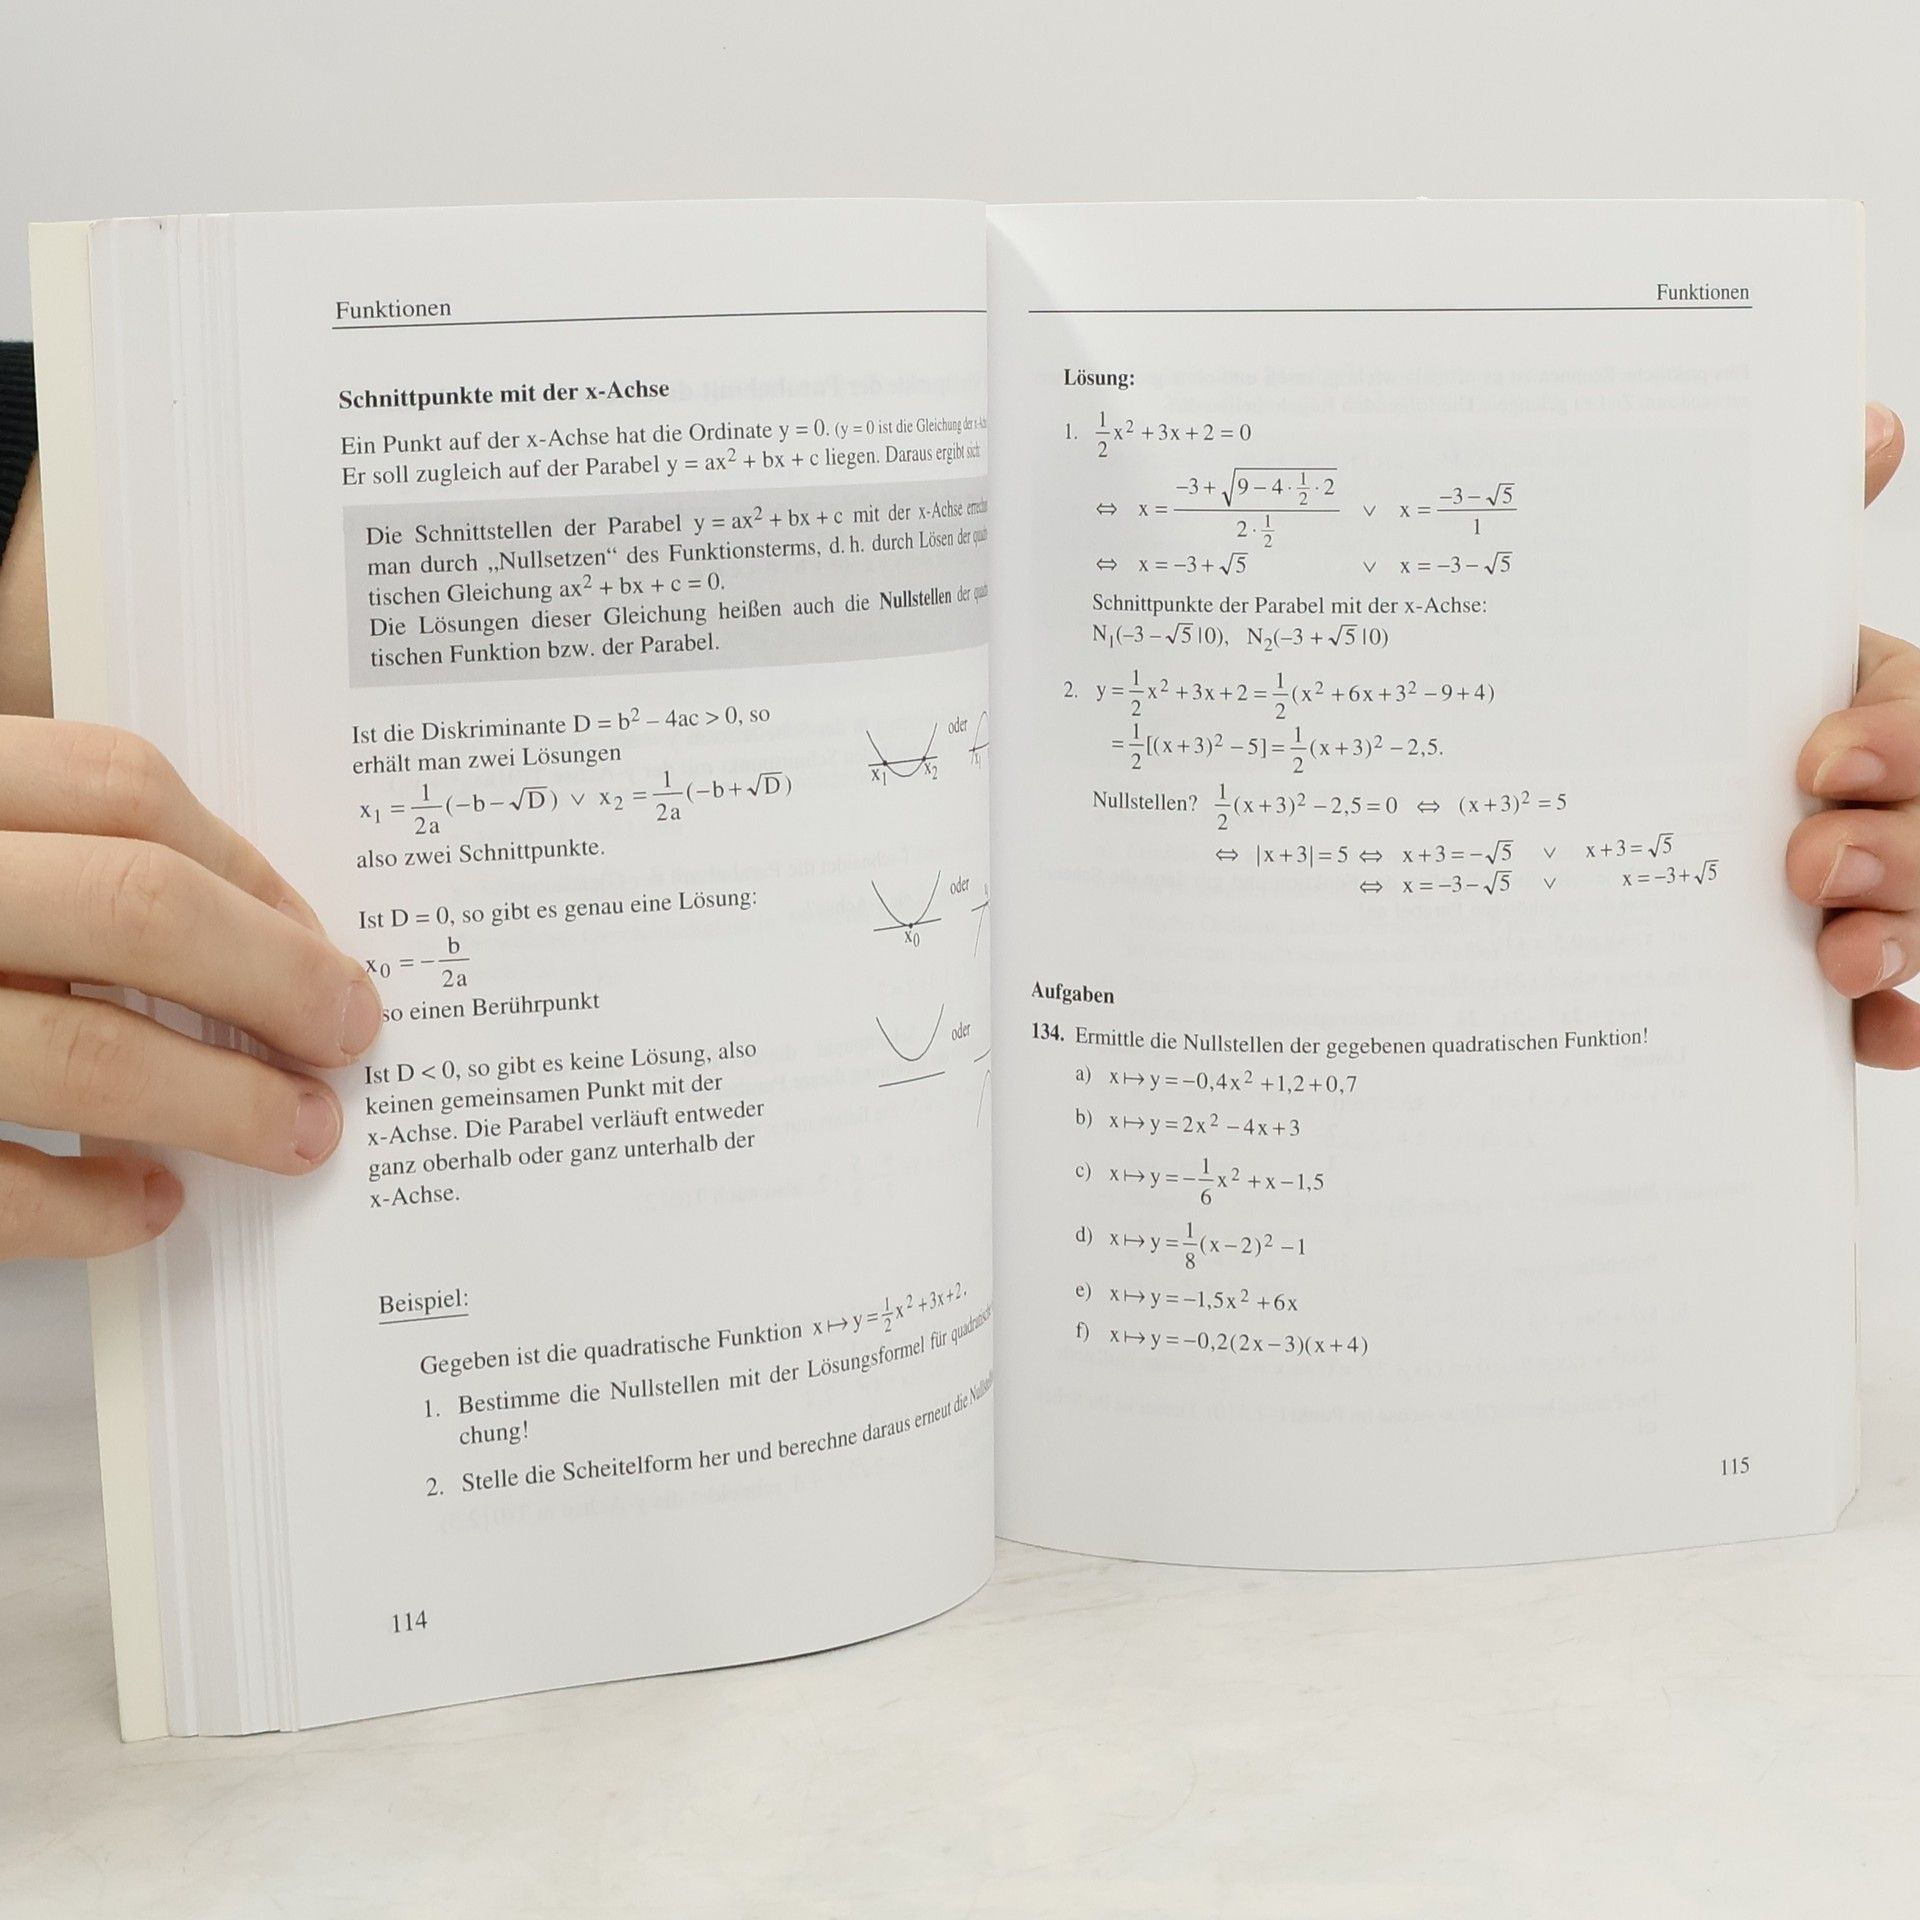 Funktionen
Schnittpunkte mit der x-Achse
Ein Punkt auf der x-Achse hat die Ordinate y = 0. (y = 0 ist die Gleichung der
Er soll zugleich auf der Parabel y = ax² + bx + c liegen. Daraus ergibt sich
Die Schnittstellen der Parabel y = ax² + bx + c mit der x-Achse
man durch „Nullsetzen“ des Funktionsterms, d. h. durch Lösen der
tischen Gleichung ax² + bx + c = 0.
Die Lösungen dieser Gleichung heißen auch die Nullstellen der
tischen Funktion bzw. der Parabel.
Ist die Diskriminante D = b² – 4ac > 0, so
erhält man zwei Lösungen
x₁ = 1/2a (–b–√D) ∨ x₂ = 1/2a (–b+√D)
also zwei Schnittpunkte.
x₁ x₂ oder
Ist D = 0, so gibt es genau eine Lösung:
x₀ = – b/2a
so einen Berührpunkt
x₀ oder
Ist D < 0, so gibt es keine Lösung, also
keinen gemeinsamen Punkt mit der
x-Achse. Die Parabel verläuft entweder
ganz oberhalb oder ganz unterhalb der
x-Achse.
oder
Beispiel:
Gegeben ist die quadratische Funktion x↦y = 1/2 x² +3x+2.
1. Bestimme die Nullstellen mit der Lösungsformel für
chung!
2. Stelle die Scheitelform her und berechne daraus erneut die
114
Funktionen
Lösung:
1. 1/2 x² + 3x + 2 = 0
⇔ x = (–3+√(9–4·1/2·2))/(2·1/2) ∨ x = (–3–√5)/1
⇔ x = –3+√5 ∨ x = –3–√5
Schnittpunkte der Parabel mit der x-Achse:
N₁(–3–√5|0), N₂(–3+√5|0)
2. y = 1/2 x² +3x+2 = 1/2 (x² +6x+3² –9+4)
= 1/2 [(x+3)² –5] = 1/2 (x+3)² –2,5.
Nullstellen? 1/2 (x+3)² –2,5 = 0 ⇔ (x+3)² = 5
⇔ |x+3| = 5 ⇔ x+3 = –√5 ∨ x+3 = √5
⇔ x = –3–√5 ∨ x = –3+√5
Aufgaben
134. Ermittle die Nullstellen der gegebenen quadratischen Funktion!
a) x↦y = –0,4x² +1,2+0,7
b) x↦y = 2x² –4x+3
c) x↦y = –1/6 x² +x–1,5
d) x↦y = 1/8 (x–2)² –1
e) x↦y = –1,5x² +6x
f) x↦y = –0,2(2x–3)(x+4)
115